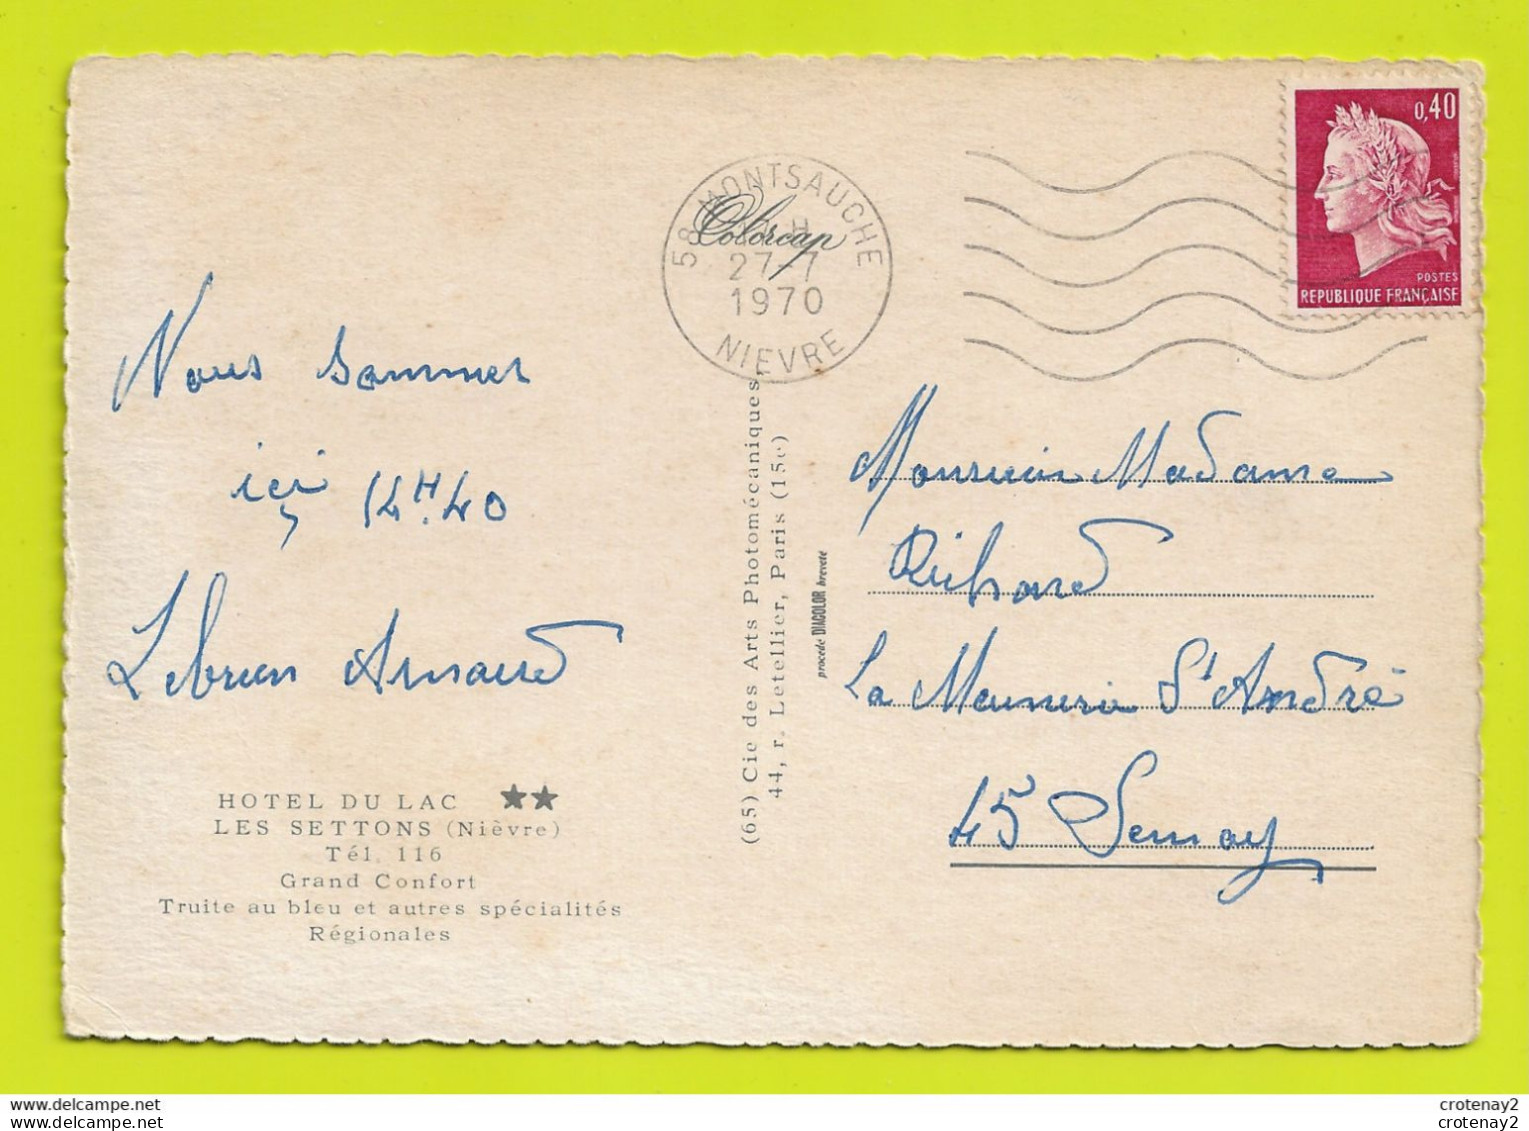 0,40
POSTES
REPUBLIQUE FRANÇAISE
58 MONTSAUCHE
Colorcap
27-7
1970
NIEVRE
Nous sommes
içi 14H.40
Lebrun Arnaud
HOTEL DU LAC ★★
LES SETTONS (Nièvre)
Tél. 116
Grand Confort
Truite au bleu et autres spécialités
Régionales
(65) Cie des Arts Photomécaniques,
44, r. Letellier, Paris (15e)
procédé DIACOLOR breveté
Monsieur Madame
Richard
La Meunerie St André
45 Semoy
crotenay2
crotenay2